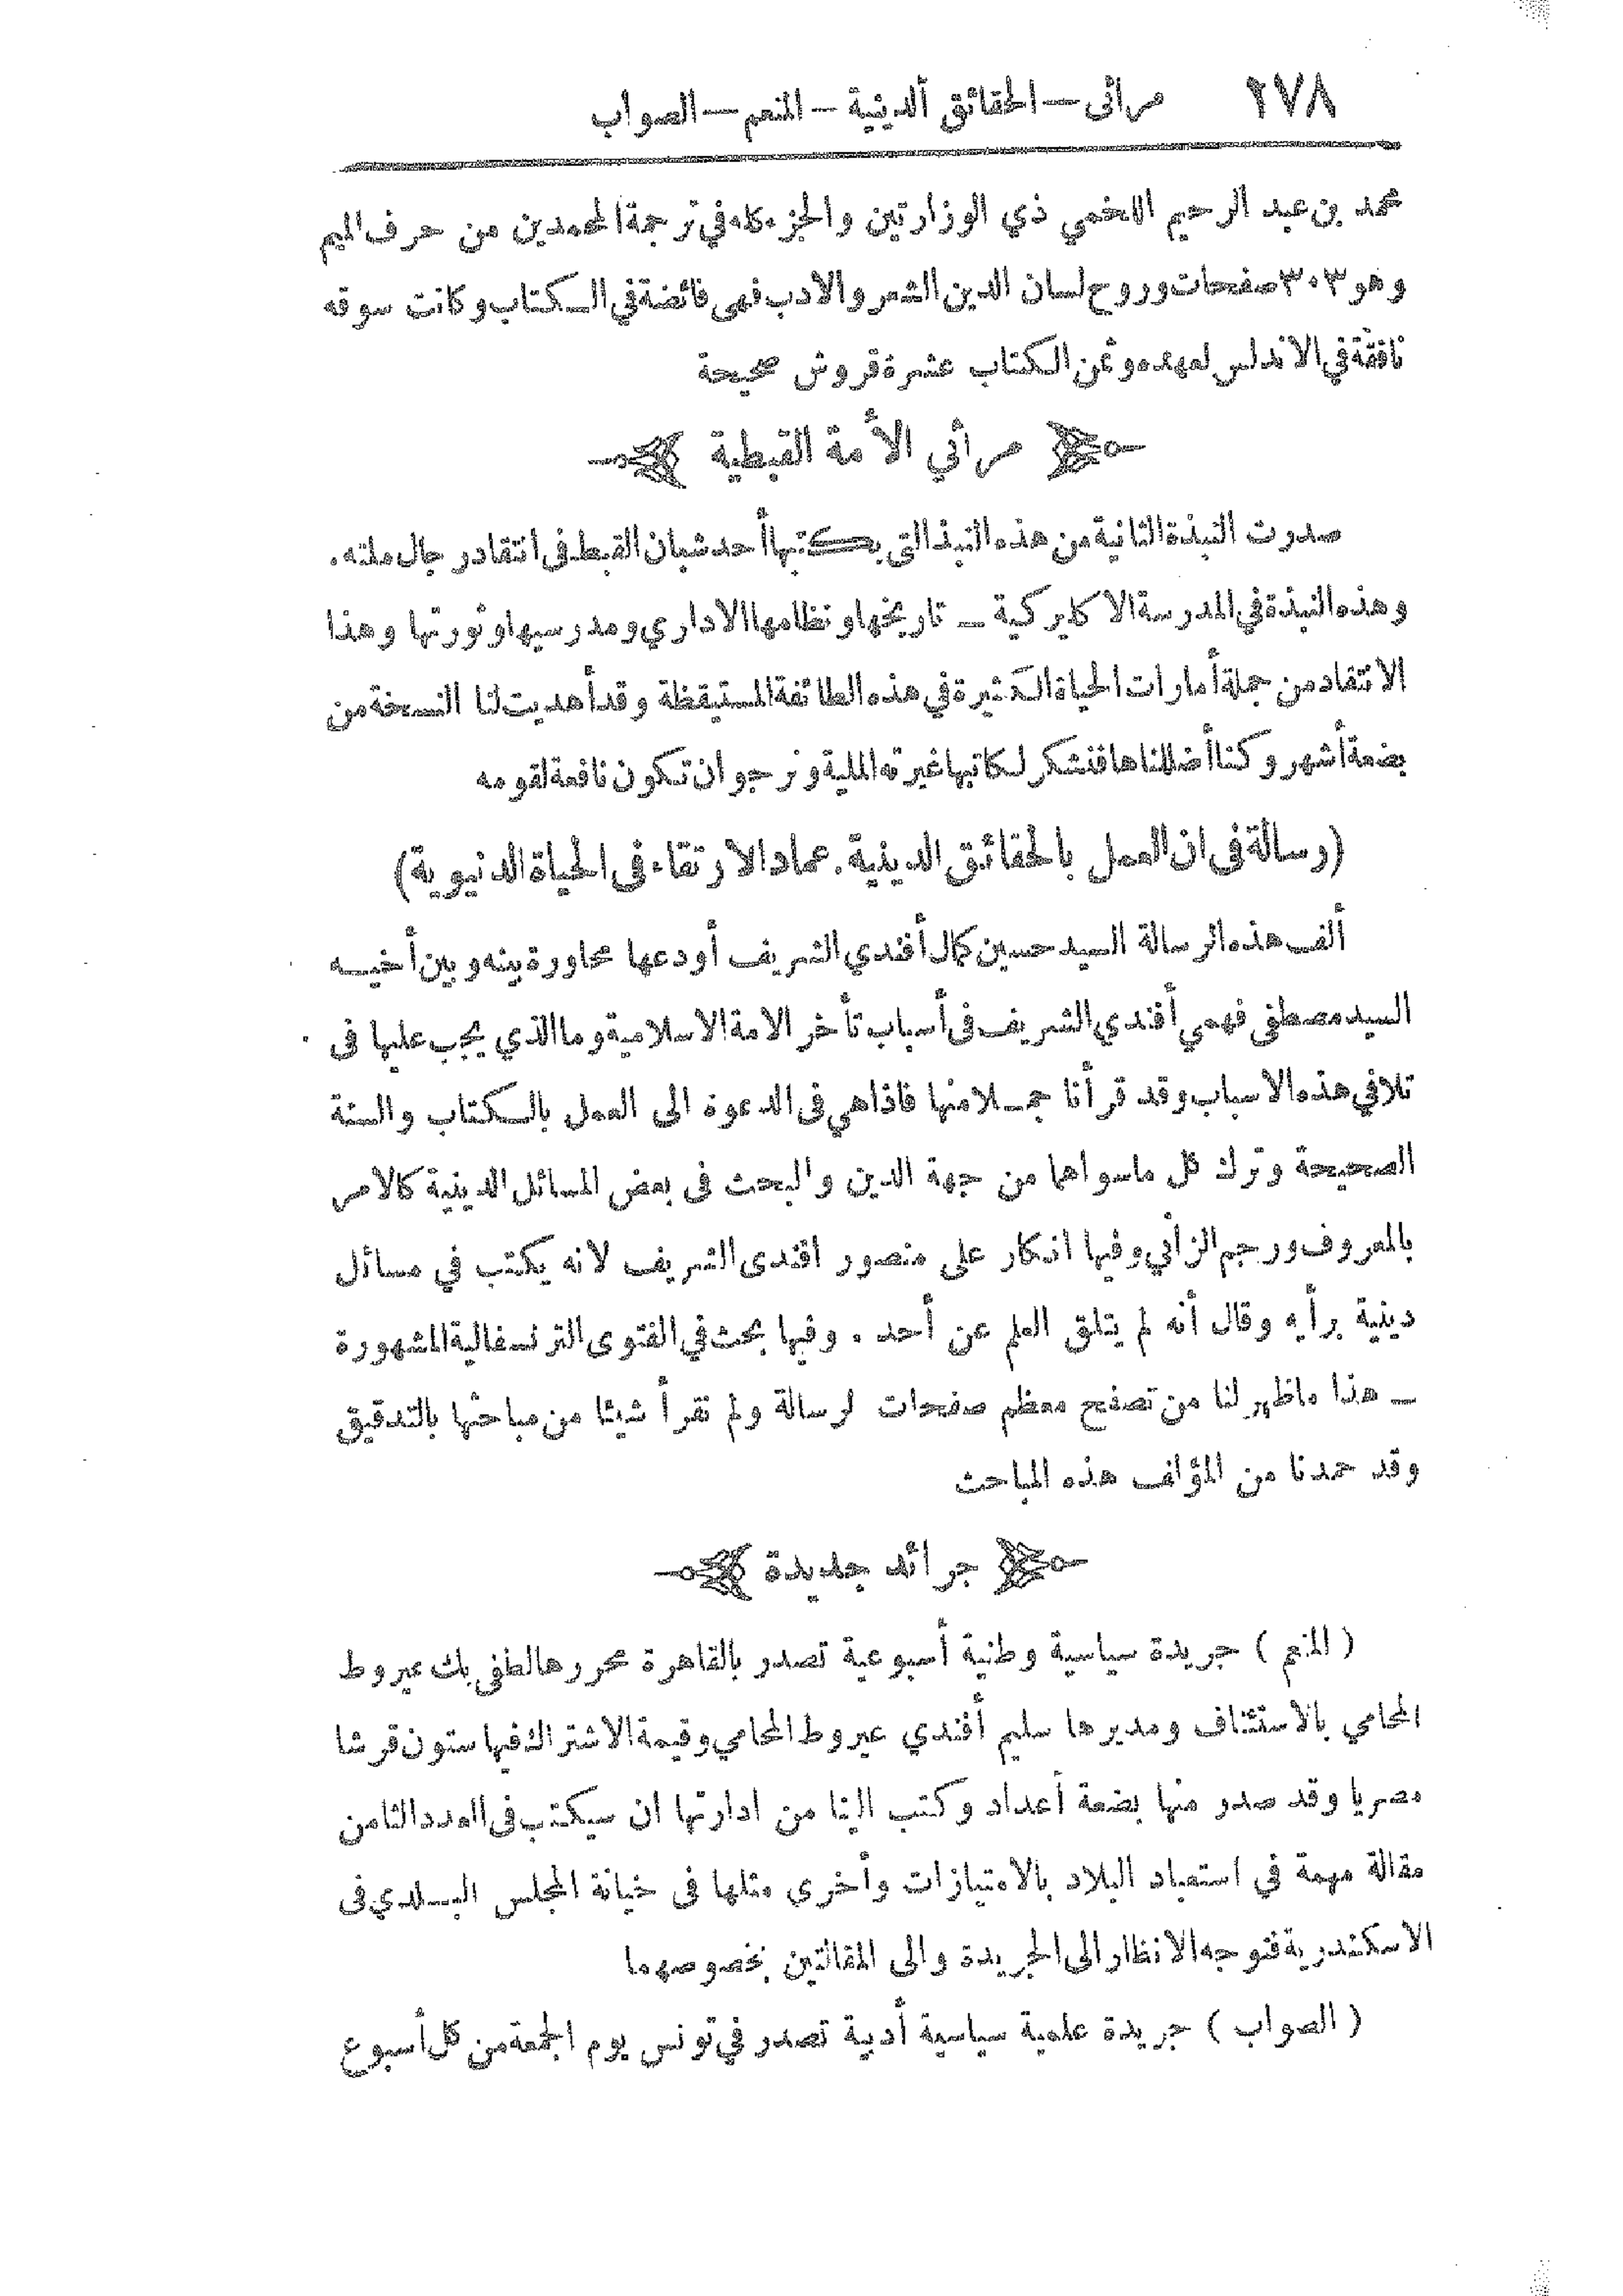 ٢٧٨ مرائى — الحقائق الدينية — المنعم — الصواب
محمد بن عبد الرحيم اللخمي ذي الوزارتين والجزء كله في ترجمة المحمدين من حرف الميم
وهو ٣٠٣ صفحات وروح لسان الدين الشعر والادب فهى فائضة في الكتاب وكانت سوقه
نافقة في الاندلس لعهده وثمن الكتاب عشرة قروش صحيحة
مرائي الأمة القبطية
صدرت النبذة الثانية من هذه النبذ التى يكتبها أحد شبان القبط فى انتقاد رجال ملته.
وهذه النبذة في المدرسة الاكليركية ـ تاريخها ونظامها الاداري ومدرسيها وثورتها وهذا
الانتقاد من جملة أمارات الحياة الكثيرة في هذه الطائفة المستيقظة وقد أهديت لنا النسخة من
بضعة أشهر وكنا أضللناها فنشكر لكاتبها غيرته الملية ونرجو ان تكون نافعة لقومه
(رسالة فى ان العمل بالحقائق الدينية. عماد الارتقاء فى الحياة الدنيوية)
ألف هذه الرسالة السيد حسين كمال أفندي الشريف أودعها محاورة بينه وبين أخيـه
السيد مصطفى فهمي أفندي الشريف فى أسباب تأخر الامة الاسلامية وما الذي يجب عليها فى
تلافي هذه الاسباب وقد قرأنا جمـلا منها فاذا هي فى الدعوة الى العمل بالكتاب والسنة
الصحيحة وترك كل ماسواهما من جهة الدين والبحث فى بعض المسائل الدينية كالامر
بالمعروف ورجم الزاني وفيها انكار على منصور افندى الشريف لانه يكتب في مسائل
دينية برأيه وقال أنه لم يتلق العلم عن أحد . وفيها بحث في الفتوى الترنسفالية المشهورة
ـ هذا ماظهر لنا من تصفح معظم صفحات لرسالة ولم نقرأ شيئا من مباحثها بالتدقيق
وقد حمدنا من المؤلف هذه المباحث
جرائد جديدة
( المنعم ) جريدة سياسية وطنية أسبوعية تصدر بالقاهرة محررها لطفى بك عيروط
المحامي بالاستئناف ومديرها سليم أفندي عيروط المحامي وقيمة الاشتراك فيها ستون قرشا
مصريا وقد صدر منها بضعة أعداد وكتب الينا من ادارتها ان سيكتب فى العدد الثامن
مقالة مهمة في استعباد البلاد بالامتيازات وأخرى مثلها فى خيانة المجلس البـلدي فى
الاسكندرية فنوجه الانظار الى الجريدة والى المقالتين بخصوصهما
( الصواب ) جريدة علمية سياسية أدبية تصدر في تونس يوم الجمعة من كل أسبوع